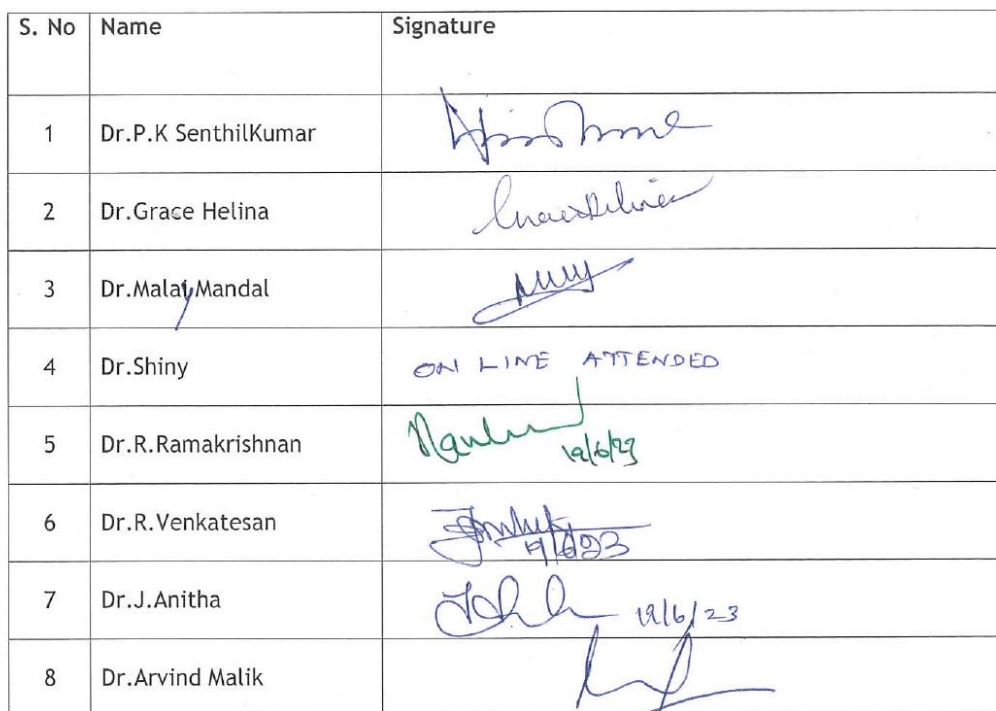 S. No Name Signature
1 Dr.P.K SenthilKumar
2 Dr.Grace Helina
3 Dr.Malay Mandal
4 Dr.Shiny ON LINE ATTENDED
5 Dr.R.Ramakrishnan 19/6/23
6 Dr.R.Venkatesan 19/6/23
7 Dr.J.Anitha 19/6/23
8 Dr.Arvind Malik